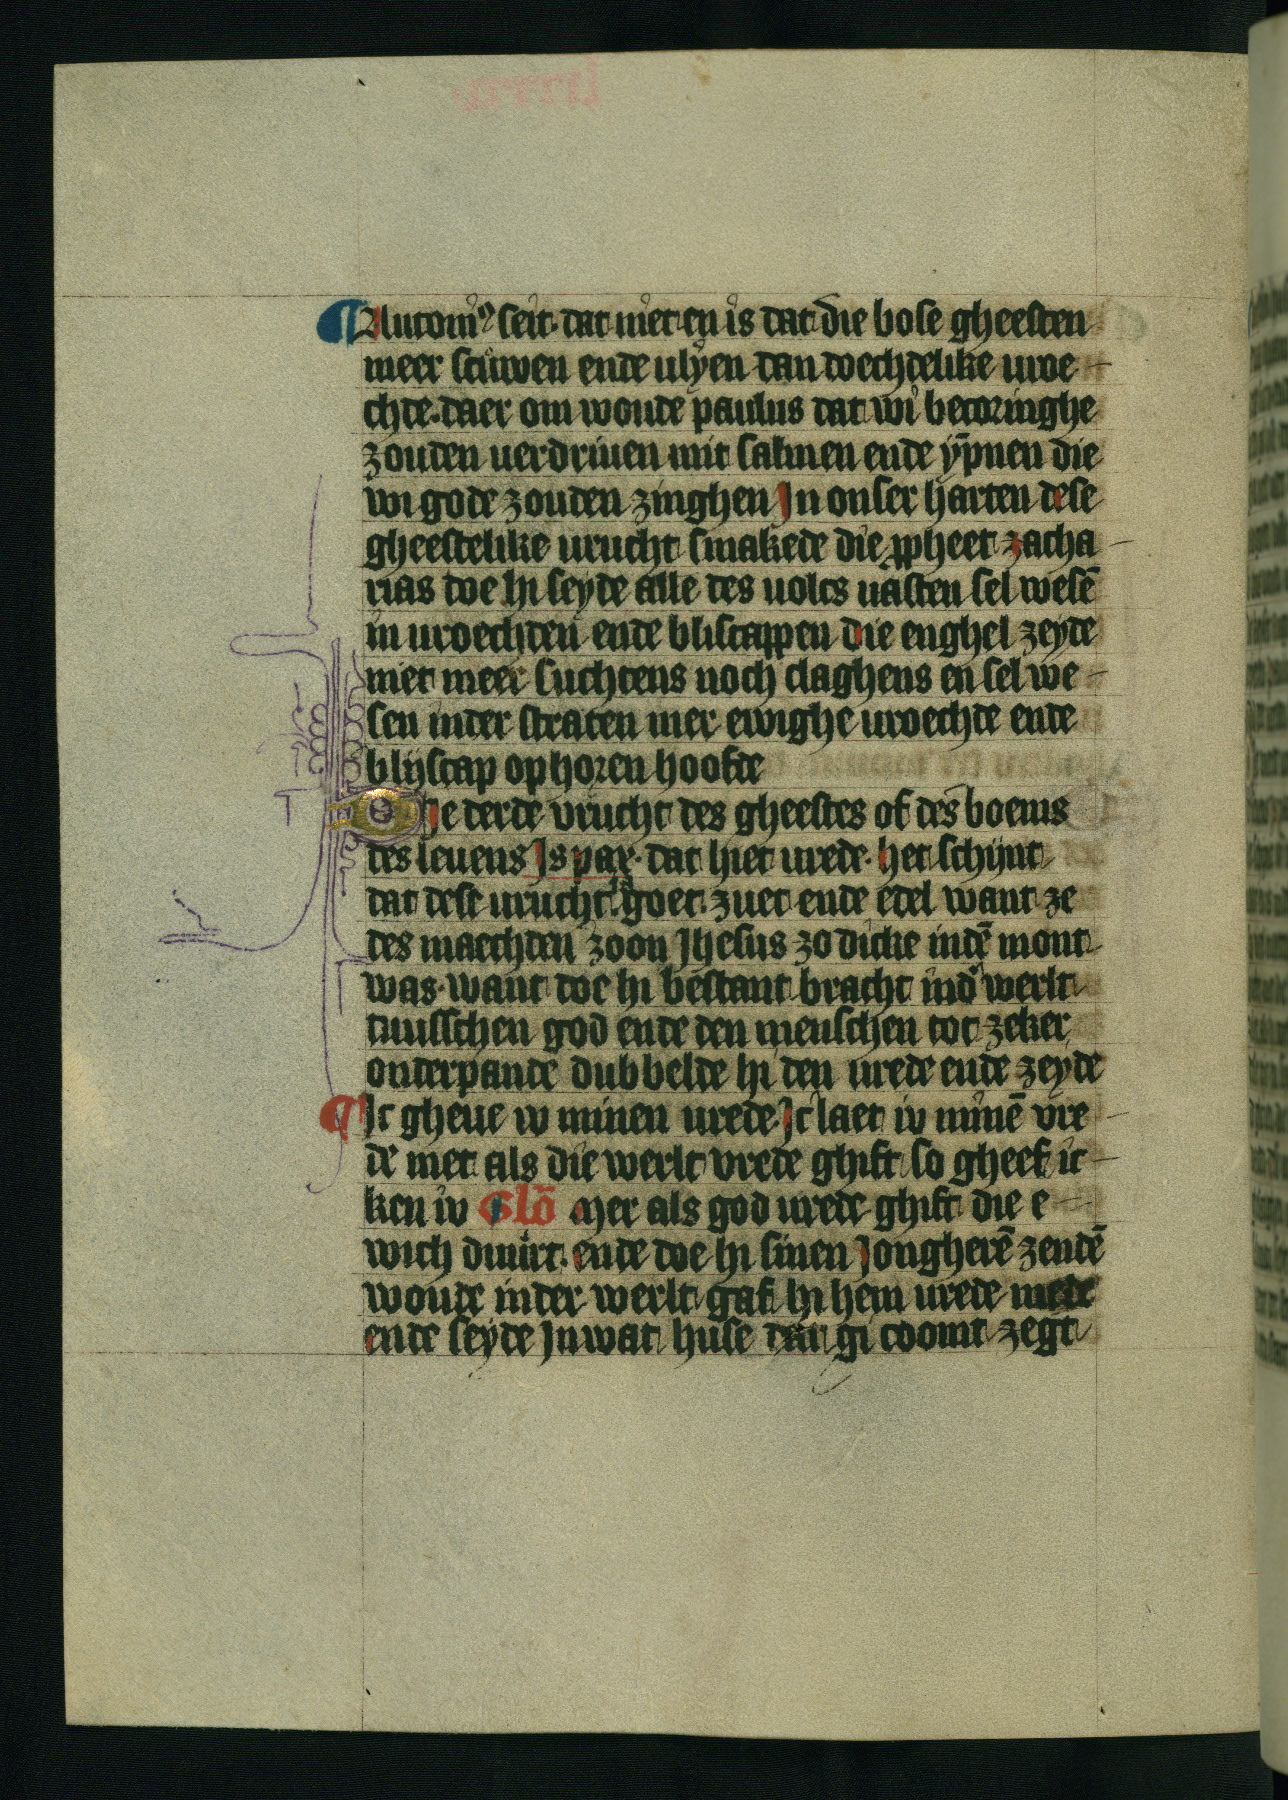 ¶ Antoniꝰ seit· dat niet en is dat die bose gheesten
meer scuwen ende vlyen dan die vechtelike vroe
chte· daer om woude paulus dat wi becoringhe
zouden verdriuen mit salmen ende ȳpnen die
wi gode zouden zinghen In onser harten dese
gheestelike vrucht smakede die ꝓpheet zacha
rias doe hi seyde alle des volcs vasten sel wesē
in vroechden ende bliscappen die enghel zeyde
niet meer suchtens noch claghens en sel we
sen inder straten mer ewighe vroechde ende
blijscap op horen hoofde
Die derde vrucht des gheestes of des boems
des leuens Is pax· dat hiet vrede· het schijnt
dat dese vrucht goet· zuet ende edel want ze
des maechden zoon Jhesus zo dicke indē mont
was· want doe hi bestant bracht indʼ werlt
tusschen god ende den menschen tot zeker
onderpande dubbelde hi den vrede ende zeyde
¶ Ic gheue w minen vrede· Ic laet iv minē vre
de niet als die werlt vrede ghift so gheef ic
ken iv Glō Mer als god vrede ghift die e
wich duurt· ende doe hi sinen Jongherē zendē
woude inder werlt gaf hi hem vrede mede
ende seyde In wat huse dan gi coomt zegt